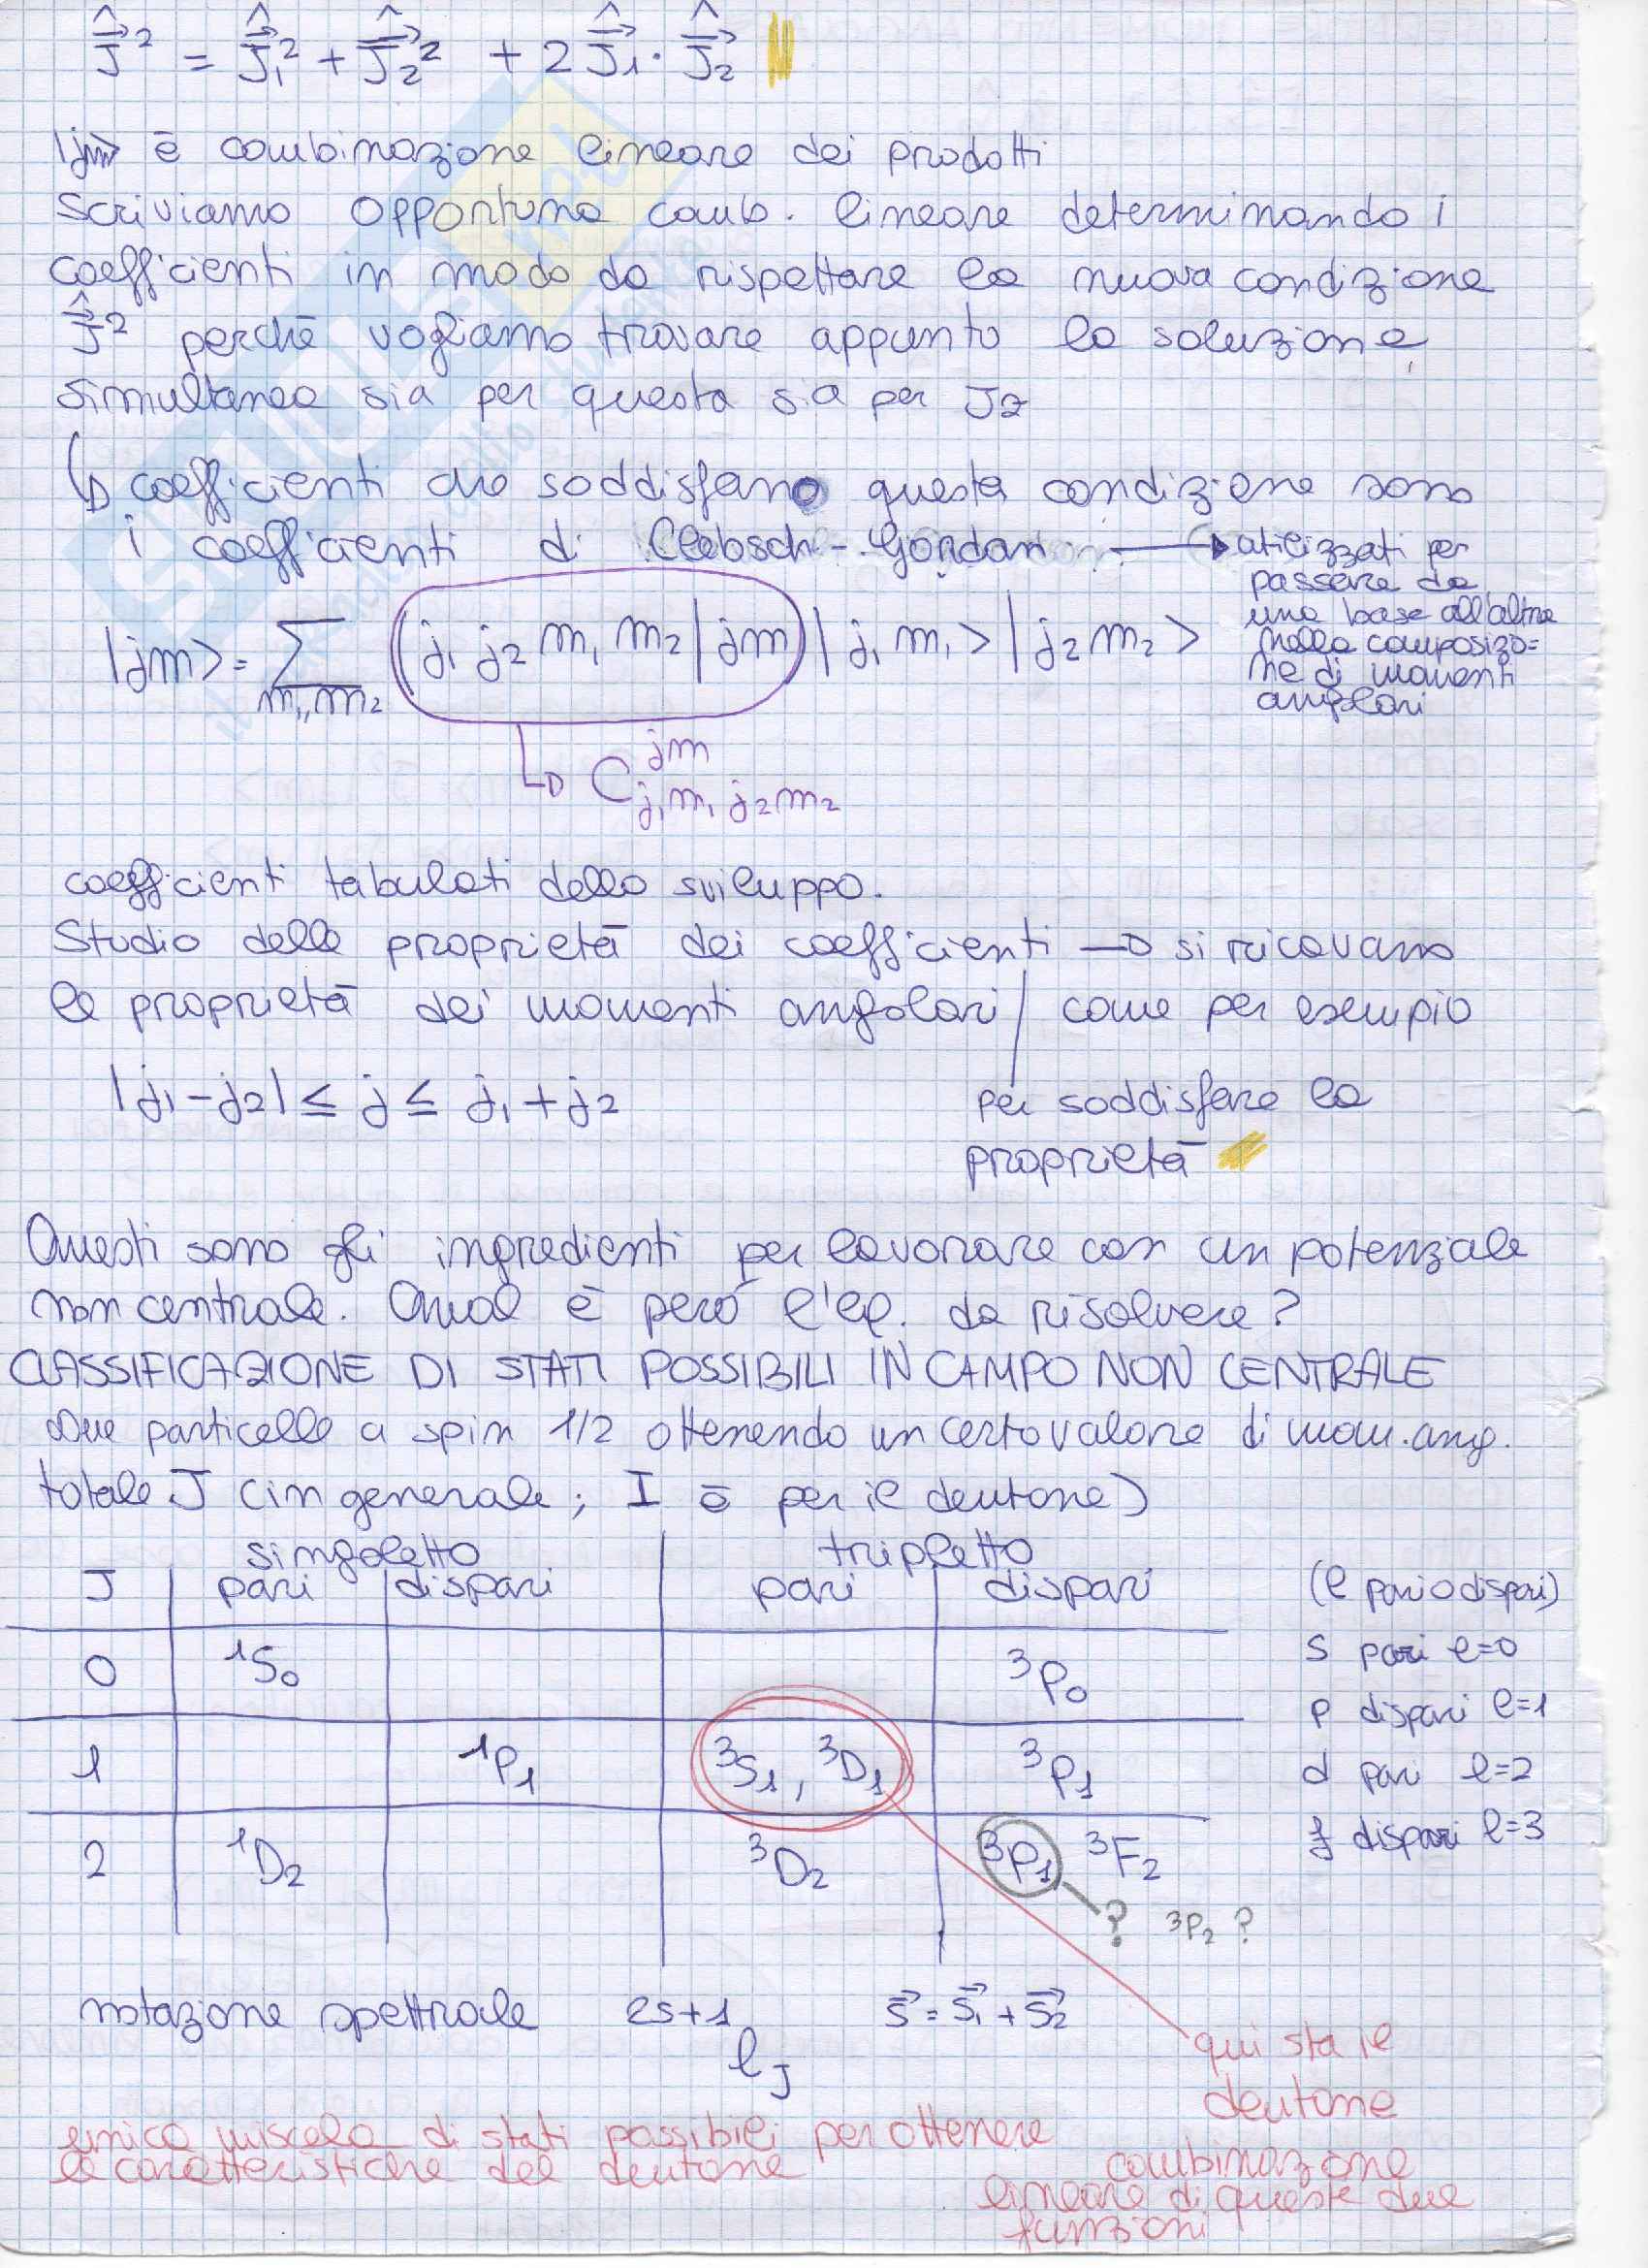 Ĵ² = Ĵ₁² + Ĵ₂² + 2 Ĵ₁ · Ĵ₂
|jm> è combinazione lineare dei prodotti
Scriviamo opportuna comb. lineare determinando i
coefficienti in modo da rispettare la nuova condizione
Ĵ² perché vogliamo trovare appunto la soluzione
simultanea sia per questa sia per Jz
↳ coefficienti che soddisfano questa condizione sono
i coefficienti di Clebsch-Gordan → utilizzati per
passare da
una base all'altra
nella composizio=
ne di momenti
angolari
|jm> = Σ (j₁ j₂ m₁ m₂ | jm) | j₁ m₁ > | j₂ m₂ >
m₁,m₂
↳ C^{jm}_{j₁m₁ j₂m₂}
coefficienti tabulati dello sviluppo.
Studio delle proprietà dei coefficienti → si ricavano
le proprietà dei momenti angolari / come per esempio
|j₁-j₂| ≤ j ≤ j₁+j₂ per soddisfare la
proprietà
Questi sono gli ingredienti per lavorare con un potenziale
non centrale. Qual è però l'eq. da risolvere?
CLASSIFICAZIONE DI STATI POSSIBILI IN CAMPO NON CENTRALE
Due particelle a spin 1/2 ottenendo un certo valore di mom. ang.
totale J (in generale; I è per il deutone)
singoletto tripletto
J pari dispari pari dispari (l pari o dispari)
0 ¹S₀ ³P₀ s pari l=0
p dispari l=1
1 ¹P₁ ³S₁, ³D₁ ³P₁ d pari l=2
2 ¹D₂ ³D₂ ³P₁ ³F₂ f dispari l=3
? ³P₂ ?
notazione spettrale 2s+1 l J s⃗ = s⃗₁ + s⃗₂
qui sta il
deutone
unica miscela di stati possibili per ottenere
le caratteristiche del deutone
combinazione
lineare di queste due
funzioni